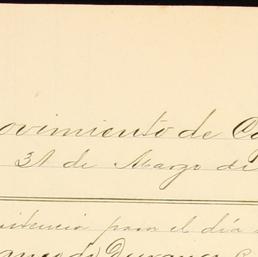 ovimiento de Ca
31 de Marzo de
istencia para el día
anco de Durango